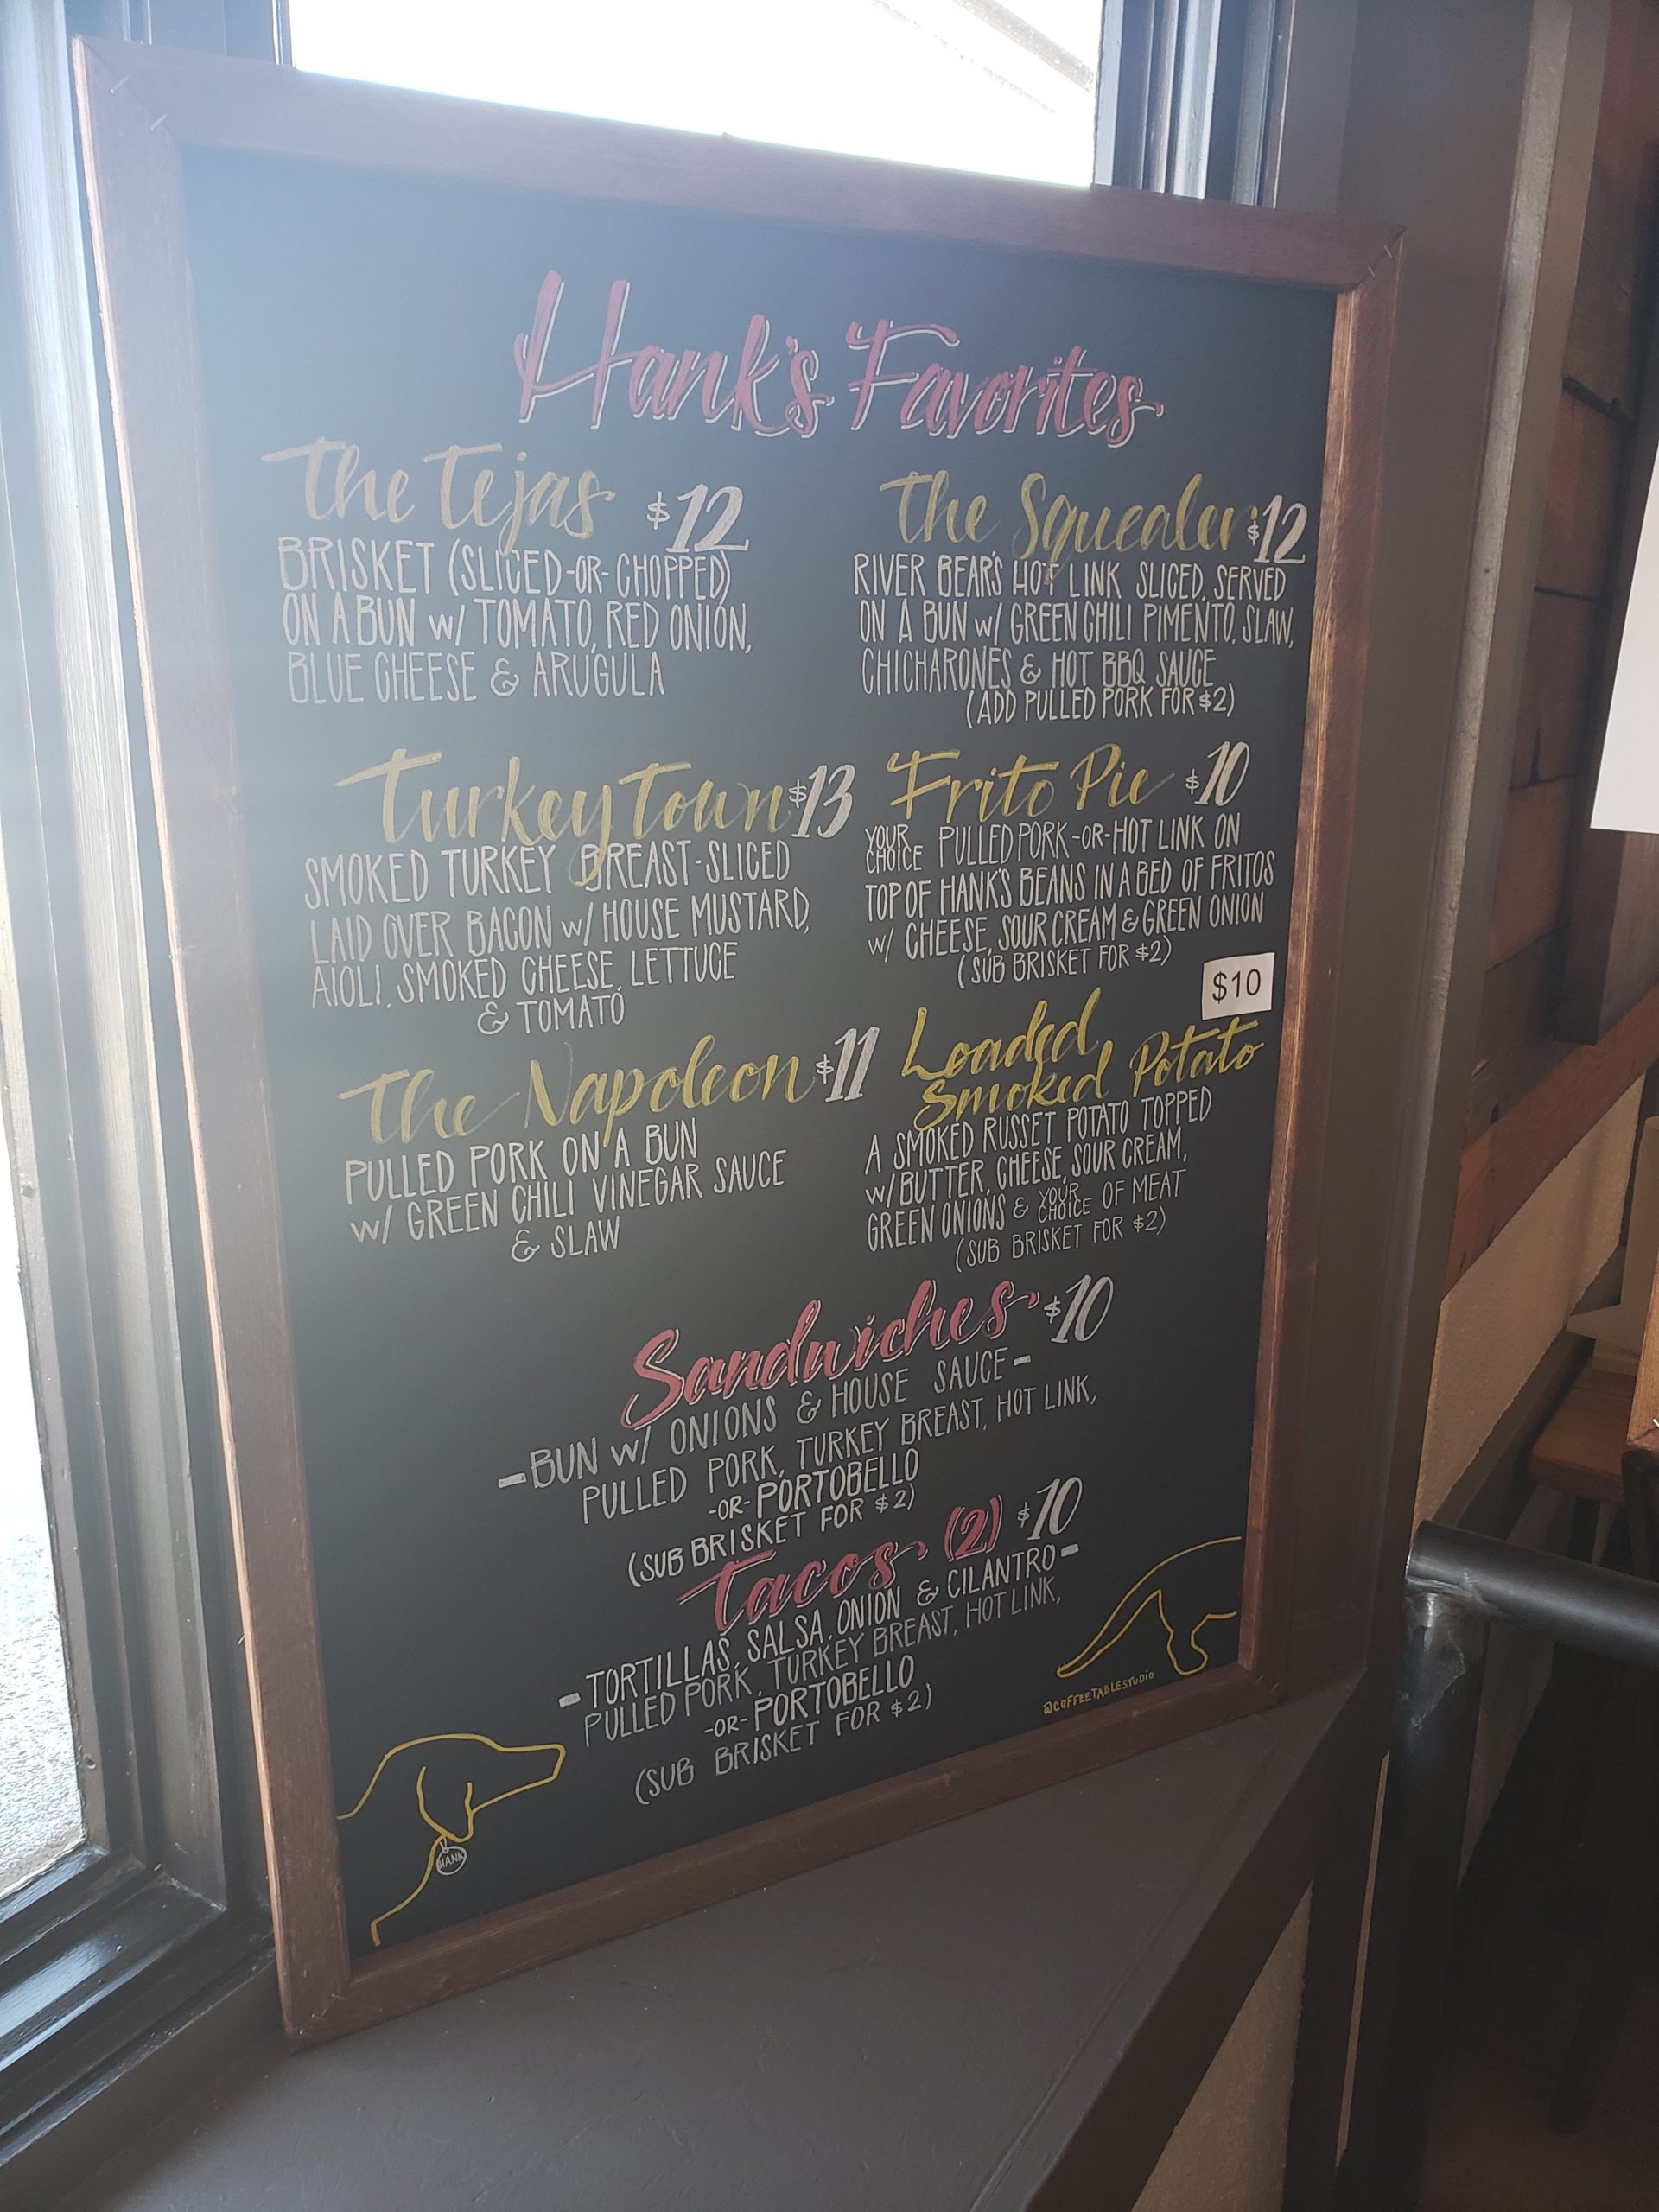 Hank's Favorites
The Tejas $12
BRISKET (SLICED-OR-CHOPPED)
ON A BUN w/ TOMATO, RED ONION,
BLUE CHEESE & ARUGULA
The Squealer $12
RIVER BEAR'S HOT LINK SLICED, SERVED
ON A BUN w/ GREEN CHILI PIMENTO, SLAW,
CHICHARONES & HOT BBQ SAUCE
(ADD PULLED PORK FOR $2)
Turkey Town $13
SMOKED TURKEY BREAST-SLICED
LAID OVER BACON w/ HOUSE MUSTARD,
AIOLI, SMOKED CHEESE, LETTUCE
& TOMATO
Frito Pie $10
YOUR CHOICE PULLED PORK-OR-HOT LINK ON
TOP OF HANK'S BEANS IN A BED OF FRITOS
w/ CHEESE, SOUR CREAM & GREEN ONION
(SUB BRISKET FOR $2)
The Napoleon $11
PULLED PORK ON A BUN
w/ GREEN CHILI VINEGAR SAUCE
& SLAW
$10
Loaded
Smoked Potato
A SMOKED RUSSET POTATO TOPPED
w/ BUTTER, CHEESE, SOUR CREAM,
GREEN ONIONS & YOUR CHOICE OF MEAT
(SUB BRISKET FOR $2)
Sandwiches $10
-BUN w/ ONIONS & HOUSE SAUCE-
PULLED PORK, TURKEY BREAST, HOT LINK,
-OR- PORTOBELLO
(SUB BRISKET FOR $2)
Tacos (2) $10
-TORTILLAS, SALSA, ONION & CILANTRO-
PULLED PORK, TURKEY BREAST, HOT LINK,
-OR- PORTOBELLO
(SUB BRISKET FOR $2)
@COFFEETABLESTUDIO
HANK